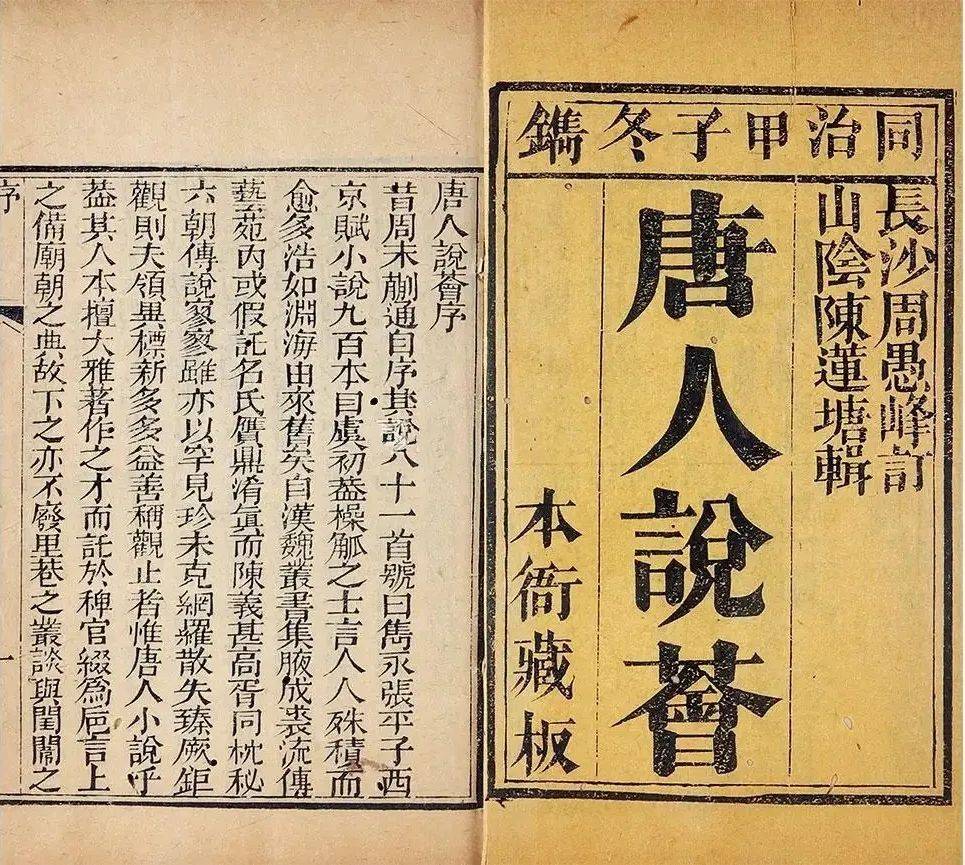 同治甲子冬鐫
長沙周愚峰訂
山陰陳蓮塘輯
唐人說薈
本衙藏板
唐人說薈序
昔周末蒯通自序其說八十一首號曰雋永張平子西
京賦小說九百本自虞初葢操觚之士言人人殊積而
愈多浩如淵海由來舊矣自漢魏叢書集腋成裘流傳
藝苑內或假託名氏贋鼎淆眞而陳義甚高胥同枕秘
六朝傳說寥寥雖亦以罕見珍未克網羅散失臻厥鉅
觀則夫領異標新多多益善稱觀止者惟唐人小說乎
葢其人本擅大雅著作之才而託於稗官綴爲巵言上
之備廟朝之典故下之亦不廢里巷之叢談與閨闈之
序
一